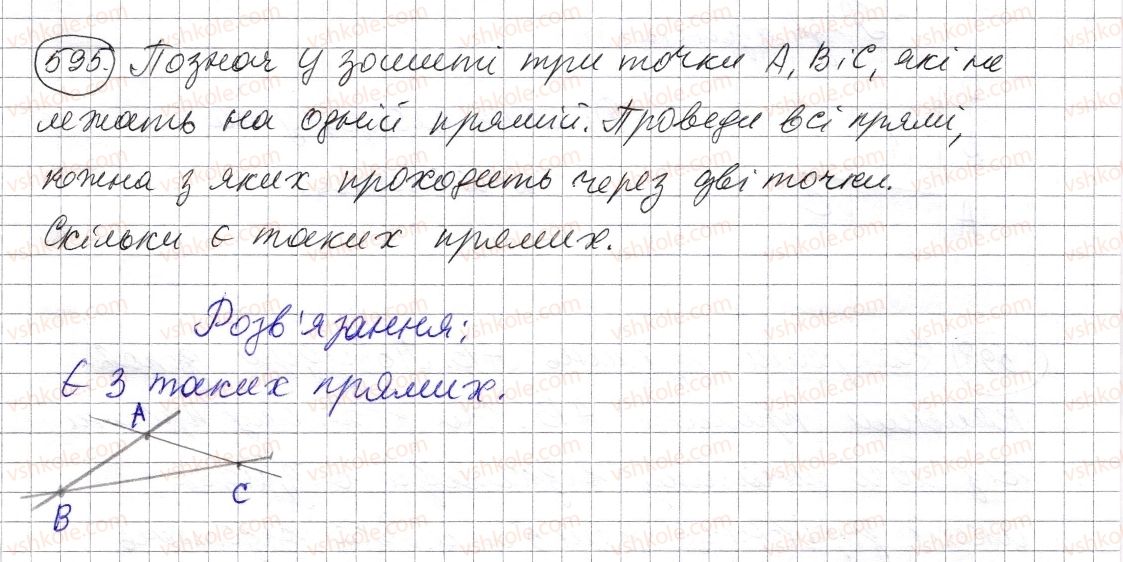 595. Познач у зошиті три точки A, B і C, які не
лежать на одній прямій. Проведи всі прямі,
кожна з яких проходить через дві точки.
Скільки є таких прямих.
Розв'язання:
Є 3 таких прямих.
A
C
B